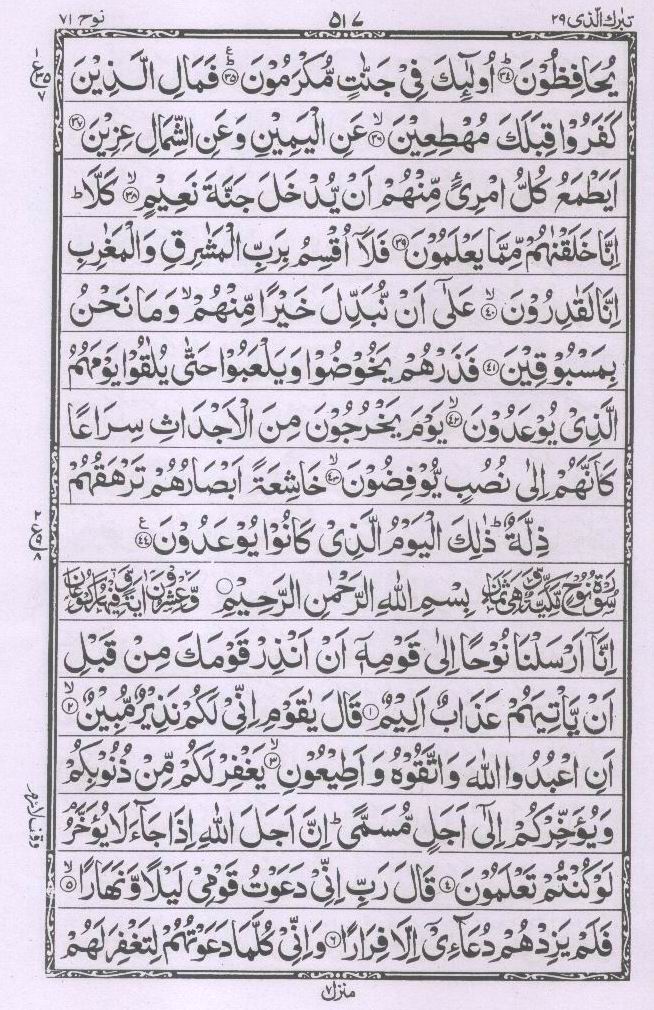 تبٰرك الّذی ۲۹ ۵۱۷ نوح ۷۱
يُحَافِظُوْنَ ﴿۳۴﴾ؕ اُولٰٓئِكَ فِیْ جَنّٰتٍ مُّكْرَمُوْنَ ﴿۳۵﴾ؕع فَمَالِ الَّذِيْنَ
كَفَرُوْا قِبَلَكَ مُهْطِعِيْنَ ﴿۳۶﴾ۙ عَنِ الْيَمِيْنِ وَعَنِ الشِّمَالِ عِزِيْنَ ﴿۳۷﴾
اَيَطْمَعُ كُلُّ امْرِئٍ مِّنْهُمْ اَنْ يُّدْخَلَ جَنَّةَ نَعِيْمٍ ﴿۳۸﴾ۙ كَلَّا ؕ
اِنَّا خَلَقْنٰهُمْ مِّمَّا يَعْلَمُوْنَ ﴿۳۹﴾ فَلَآ اُقْسِمُ بِرَبِّ الْمَشٰرِقِ وَالْمَغٰرِبِ
اِنَّا لَقٰدِرُوْنَ ﴿۴۰﴾ۙ عَلٰٓى اَنْ نُّبَدِّلَ خَيْرًا مِّنْهُمْ ۙ وَمَا نَحْنُ
بِمَسْبُوْقِيْنَ ﴿۴۱﴾ فَذَرْهُمْ يَخُوْضُوْا وَيَلْعَبُوْا حَتّٰى يُلٰقُوْا يَوْمَهُمُ
الَّذِیْ يُوْعَدُوْنَ ﴿۴۲﴾ۙ يَوْمَ يَخْرُجُوْنَ مِنَ الْاَجْدَاثِ سِرَاعًا
كَاَنَّهُمْ اِلٰى نُصُبٍ يُّوْفِضُوْنَ ﴿۴۳﴾ۙ خَاشِعَةً اَبْصَارُهُمْ تَرْهَقُهُمْ
ذِلَّةٌ ؕ ذٰلِكَ الْيَوْمُ الَّذِیْ كَانُوْا يُوْعَدُوْنَ ﴿۴۴﴾ع
سُوْرَةُ نُوْحٍ مَّكِّيَّةٌ وَّهِیَ ثَمَانٌ بِسْمِ اللّٰهِ الرَّحْمٰنِ الرَّحِيْمِ وَّعِشْرُوْنَ اٰيَةً وَّفِيْهَا رُكُوْعَانِ
اِنَّآ اَرْسَلْنَا نُوْحًا اِلٰى قَوْمِهٖٓ اَنْ اَنْذِرْ قَوْمَكَ مِنْ قَبْلِ
اَنْ يَّاْتِيَهُمْ عَذَابٌ اَلِيْمٌ ﴿۱﴾ قَالَ يٰقَوْمِ اِنِّیْ لَكُمْ نَذِيْرٌ مُّبِيْنٌ ﴿۲﴾ۙ
اَنِ اعْبُدُوا اللّٰهَ وَاتَّقُوْهُ وَاَطِيْعُوْنِ ﴿۳﴾ۙ يَغْفِرْ لَكُمْ مِّنْ ذُنُوْبِكُمْ
وَيُؤَخِّرْكُمْ اِلٰٓى اَجَلٍ مُّسَمًّى ؕ اِنَّ اَجَلَ اللّٰهِ اِذَا جَآءَ لَا يُؤَخَّرُ ۘ
لَوْ كُنْتُمْ تَعْلَمُوْنَ ﴿۴﴾ قَالَ رَبِّ اِنِّیْ دَعَوْتُ قَوْمِیْ لَيْلًا وَّنَهَارًا ﴿۵﴾ۙ
فَلَمْ يَزِدْهُمْ دُعَآءِیْٓ اِلَّا فِرَارًا ﴿۶﴾ وَاِنِّیْ كُلَّمَا دَعَوْتُهُمْ لِتَغْفِرَ لَهُمْ
منزل ۷